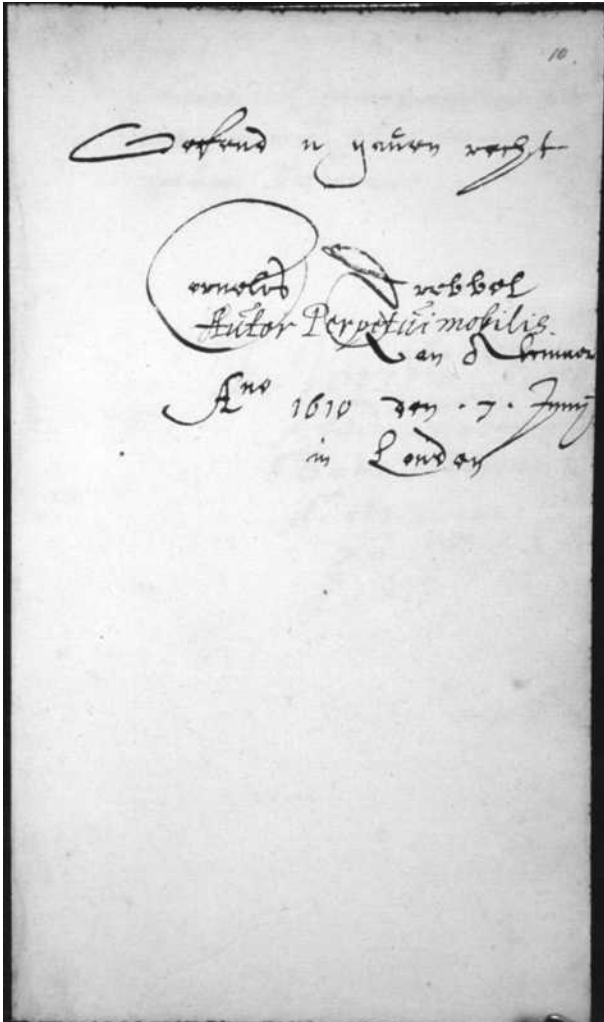 10
Oefend u gauen recht
Cornelis Drebbel
Autor Perpetui mobilis.
Van Alcmaer
Ano 1610 den . 7 . Junij
in Londen